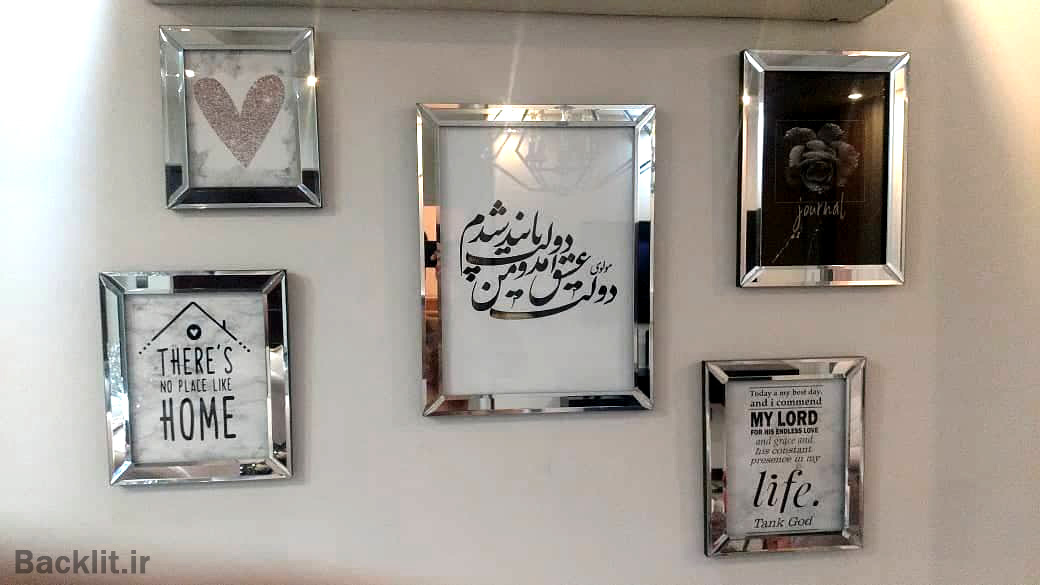 دولت عشق آمد و من
دولت پاینده شدم
مولوی
journal
THERE'S
NO PLACE LIKE
HOME
Today a my best day.
and i commend
MY LORD
FOR HIS ENDLESS LOVE
and grace and
his constant
presence in my
life.
Tank God
Backlit.ir